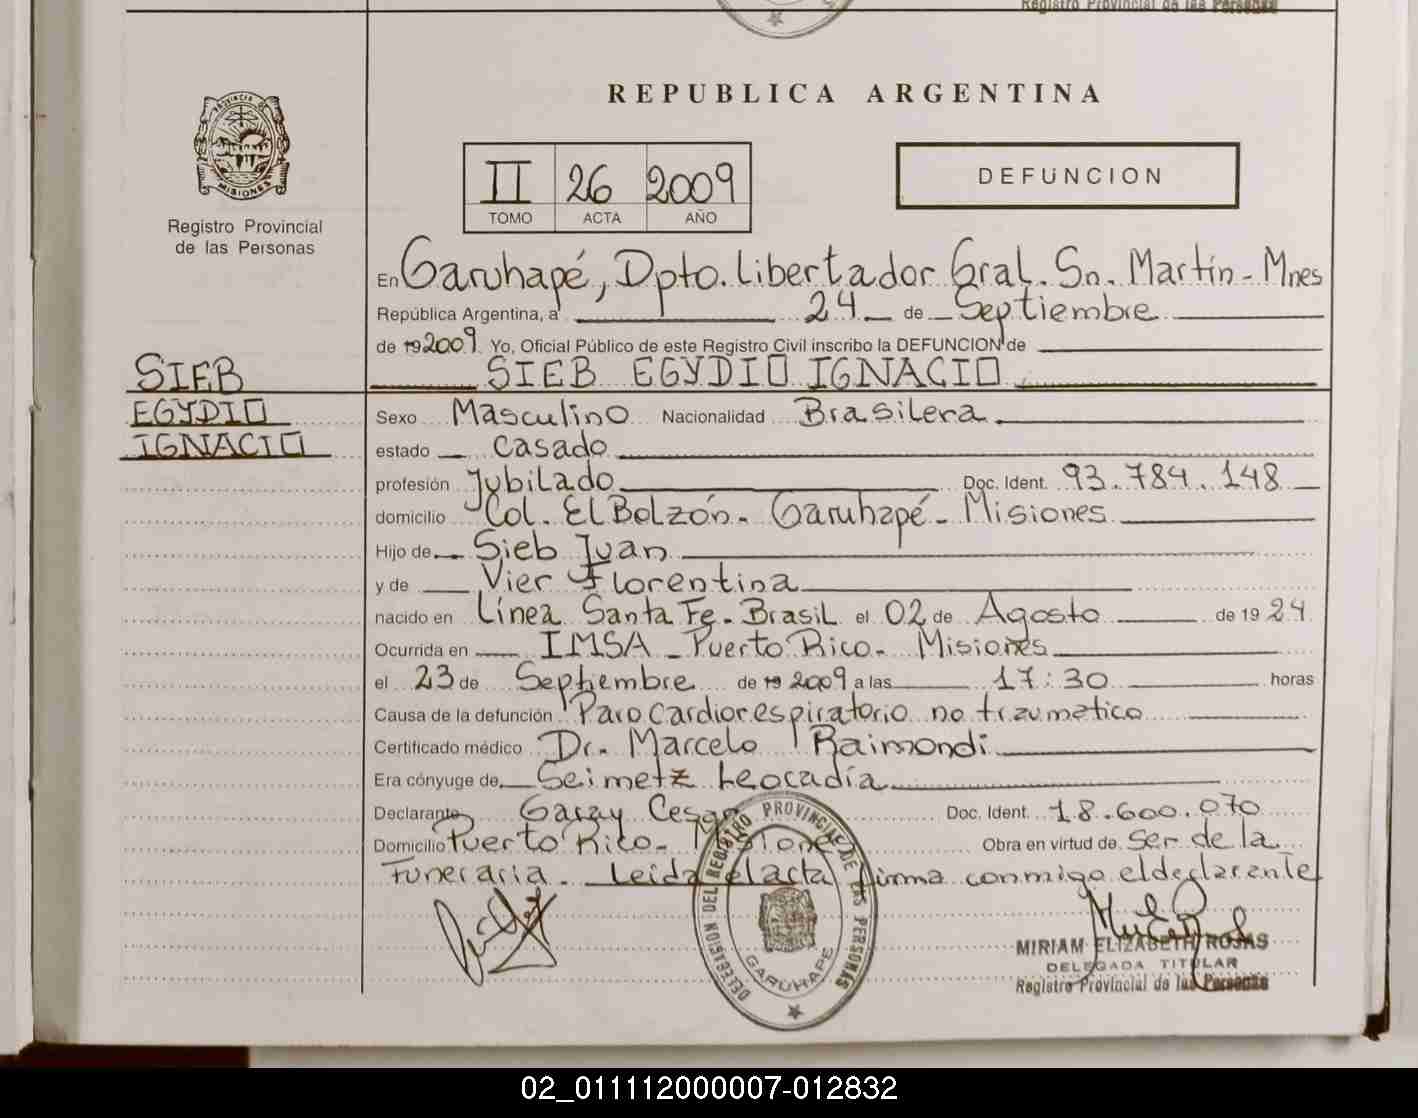 Registro Provincial de las Personas
REPUBLICA ARGENTINA
PROVINCIA DE
MISIONES
Registro Provincial
de las Personas
II 26 2009
TOMO ACTA AÑO
DEFUNCION
En Garuhapé, Dpto. Libertador Gral. Sn. Martín - Mnes
República Argentina, a 24 de Septiembre
de 19 2009. Yo, Oficial Público de este Registro Civil inscribo la DEFUNCION de
SIEB EGYDIO IGNACIO
SIEB
EGYDIO
IGNACIO
Sexo Masculino Nacionalidad Brasilera
estado Casado
profesión Jubilado Doc. Ident. 93.784.148
domicilio Col. El Bolzón - Garuhapé - Misiones
Hijo de Sieb Juan
y de Vier Florentina
nacido en Línea Santa Fe - Brasil el 02 de Agosto de 19 24
Ocurrida en IMSA - Puerto Rico - Misiones
el 23 de Septiembre de 19 2009 a las 17:30 horas
Causa de la defunción Paro Cardiorespiratorio no traumatico
Certificado médico Dr. Marcelo Raimondi
Era cónyuge de Seimetz Leocadía
Declarante Garay Cesar Doc. Ident. 18.600.070
Domicilio Puerto Rico - Misiones Obra en virtud de ser de la
Funeraria. Leida el acta firma conmigo el declarante
DELEGACION DEL REGISTRO PROVINCIAL DE LAS PERSONAS
GARUHAPE
MIRIAM ELIZABETH ROJAS
DELEGADA TITULAR
Registro Provincial de las Personas
02_011112000007-012832